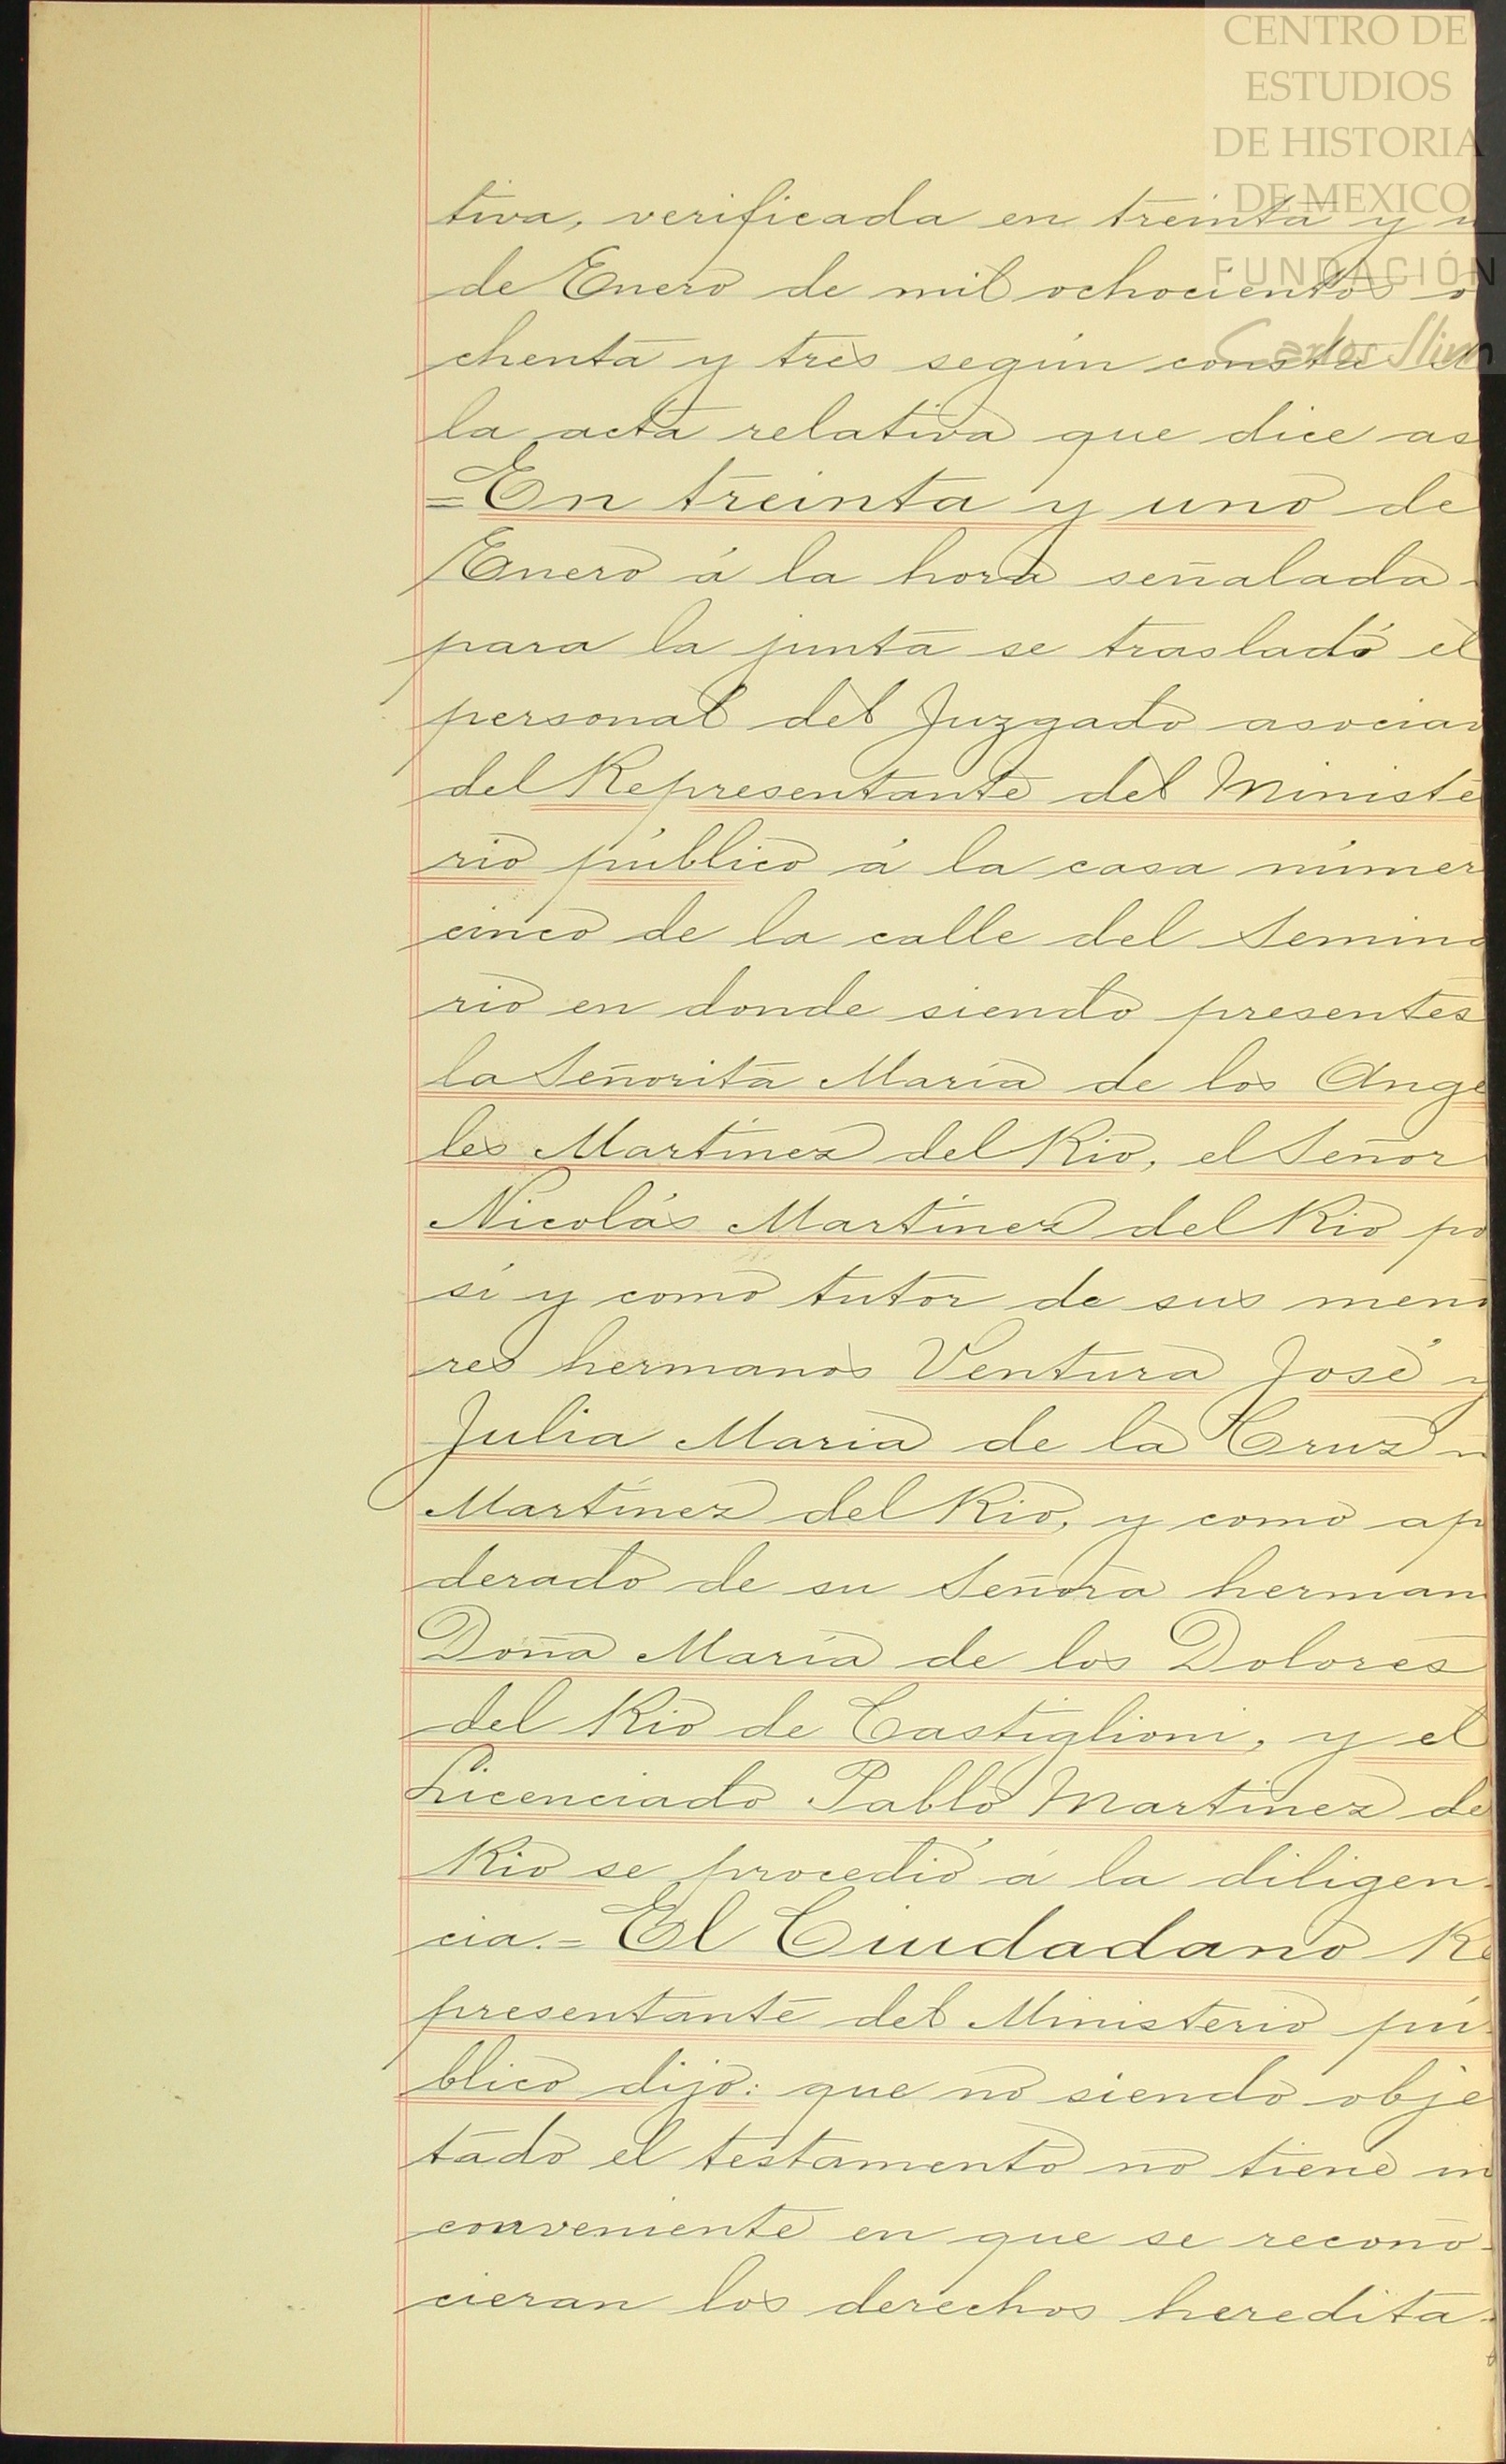 CENTRO DE
ESTUDIOS
DE HISTORIA
DE MEXICO
FUNDACIÓN
Carlos Slim
tiva, verificada en treinta y u
de Enero de mil ochocientos o
chenta y tres según consta e
la acta relativa que dice as
=En treinta y uno de
Enero á la hora señalada-
para la junta se trasladó el
personal del Juzgado asocia
del Representante del Ministe
rio público á la casa númer
cinco de la calle del Semina
rio en donde siendo presentes
la Señorita María de los Ange
les Martínez del Rio, el Señor
Nicolás Martínez del Rio po
sí y como tutor de sus meno
res hermanos Ventura José y
Julia María de la Cruz
Martínez del Rio, y como ap
derado de su Señora herman
Doña María de los Dolores
del Rio de Castiglioni, y el
Licenciado Pablo Martinez de
Rio se procedió á la diligen-
cia.= El Ciudadano Re
presentante del Ministerio pú-
blico dijo: que no siendo obje
tado el testamento no tiene in
conveniente en que se recono-
cieran los derechos heredita-